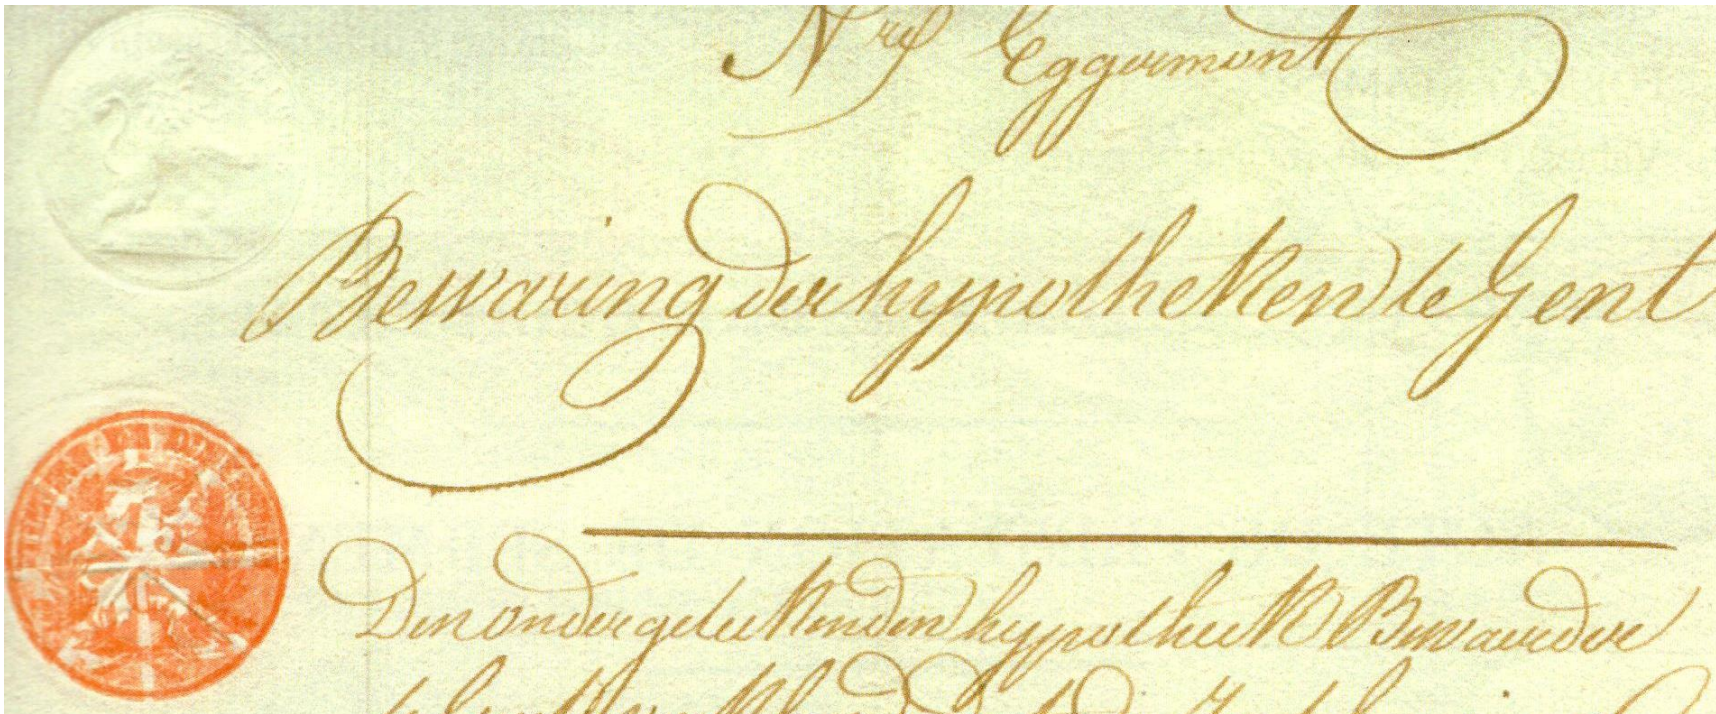 Nre Eggermont
Bewaring der hypotheken te Gent
Den ondergeteekenden hypotheek Bewaerder
15